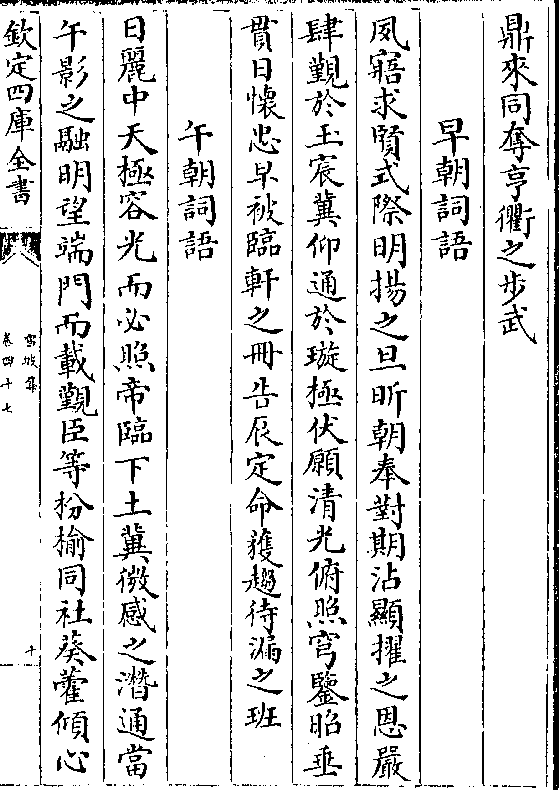 鼎來同奪亨衢之步武
早朝詞語
夙寤求賢式際明揚之旦昕朝奉對期沾顯擢之恩嚴
肆觐於玉宸冀仰通於璇極伏願清光俯照穹鑒昭垂
貫日懷忠早被臨軒之冊告辰定命獲趨待漏之班
午朝詞語
日麗中天極容光而必照帝臨下土冀微感之潛通當
午影之融明望端門而載觐臣等枌榆同社葵藿傾心
欽定四庫全書
雪坡集
卷四十七
十